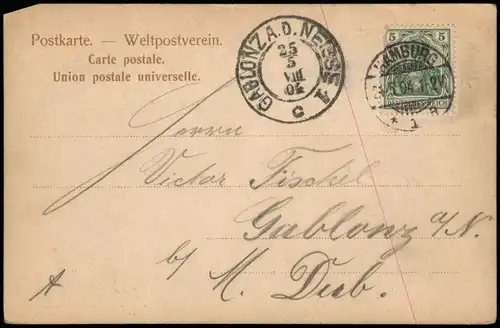 Postkarte. — Weltpostverein.
Carte postale.
Union postale universelle.
GABLONZ A.D. NEISSE 1
25
5
VIII
04
c
5 5
HAMBURG
.04.1-2V
* 1
Herrn
Victor Fischel
Gablonz a/N.
b/ M. Dub.